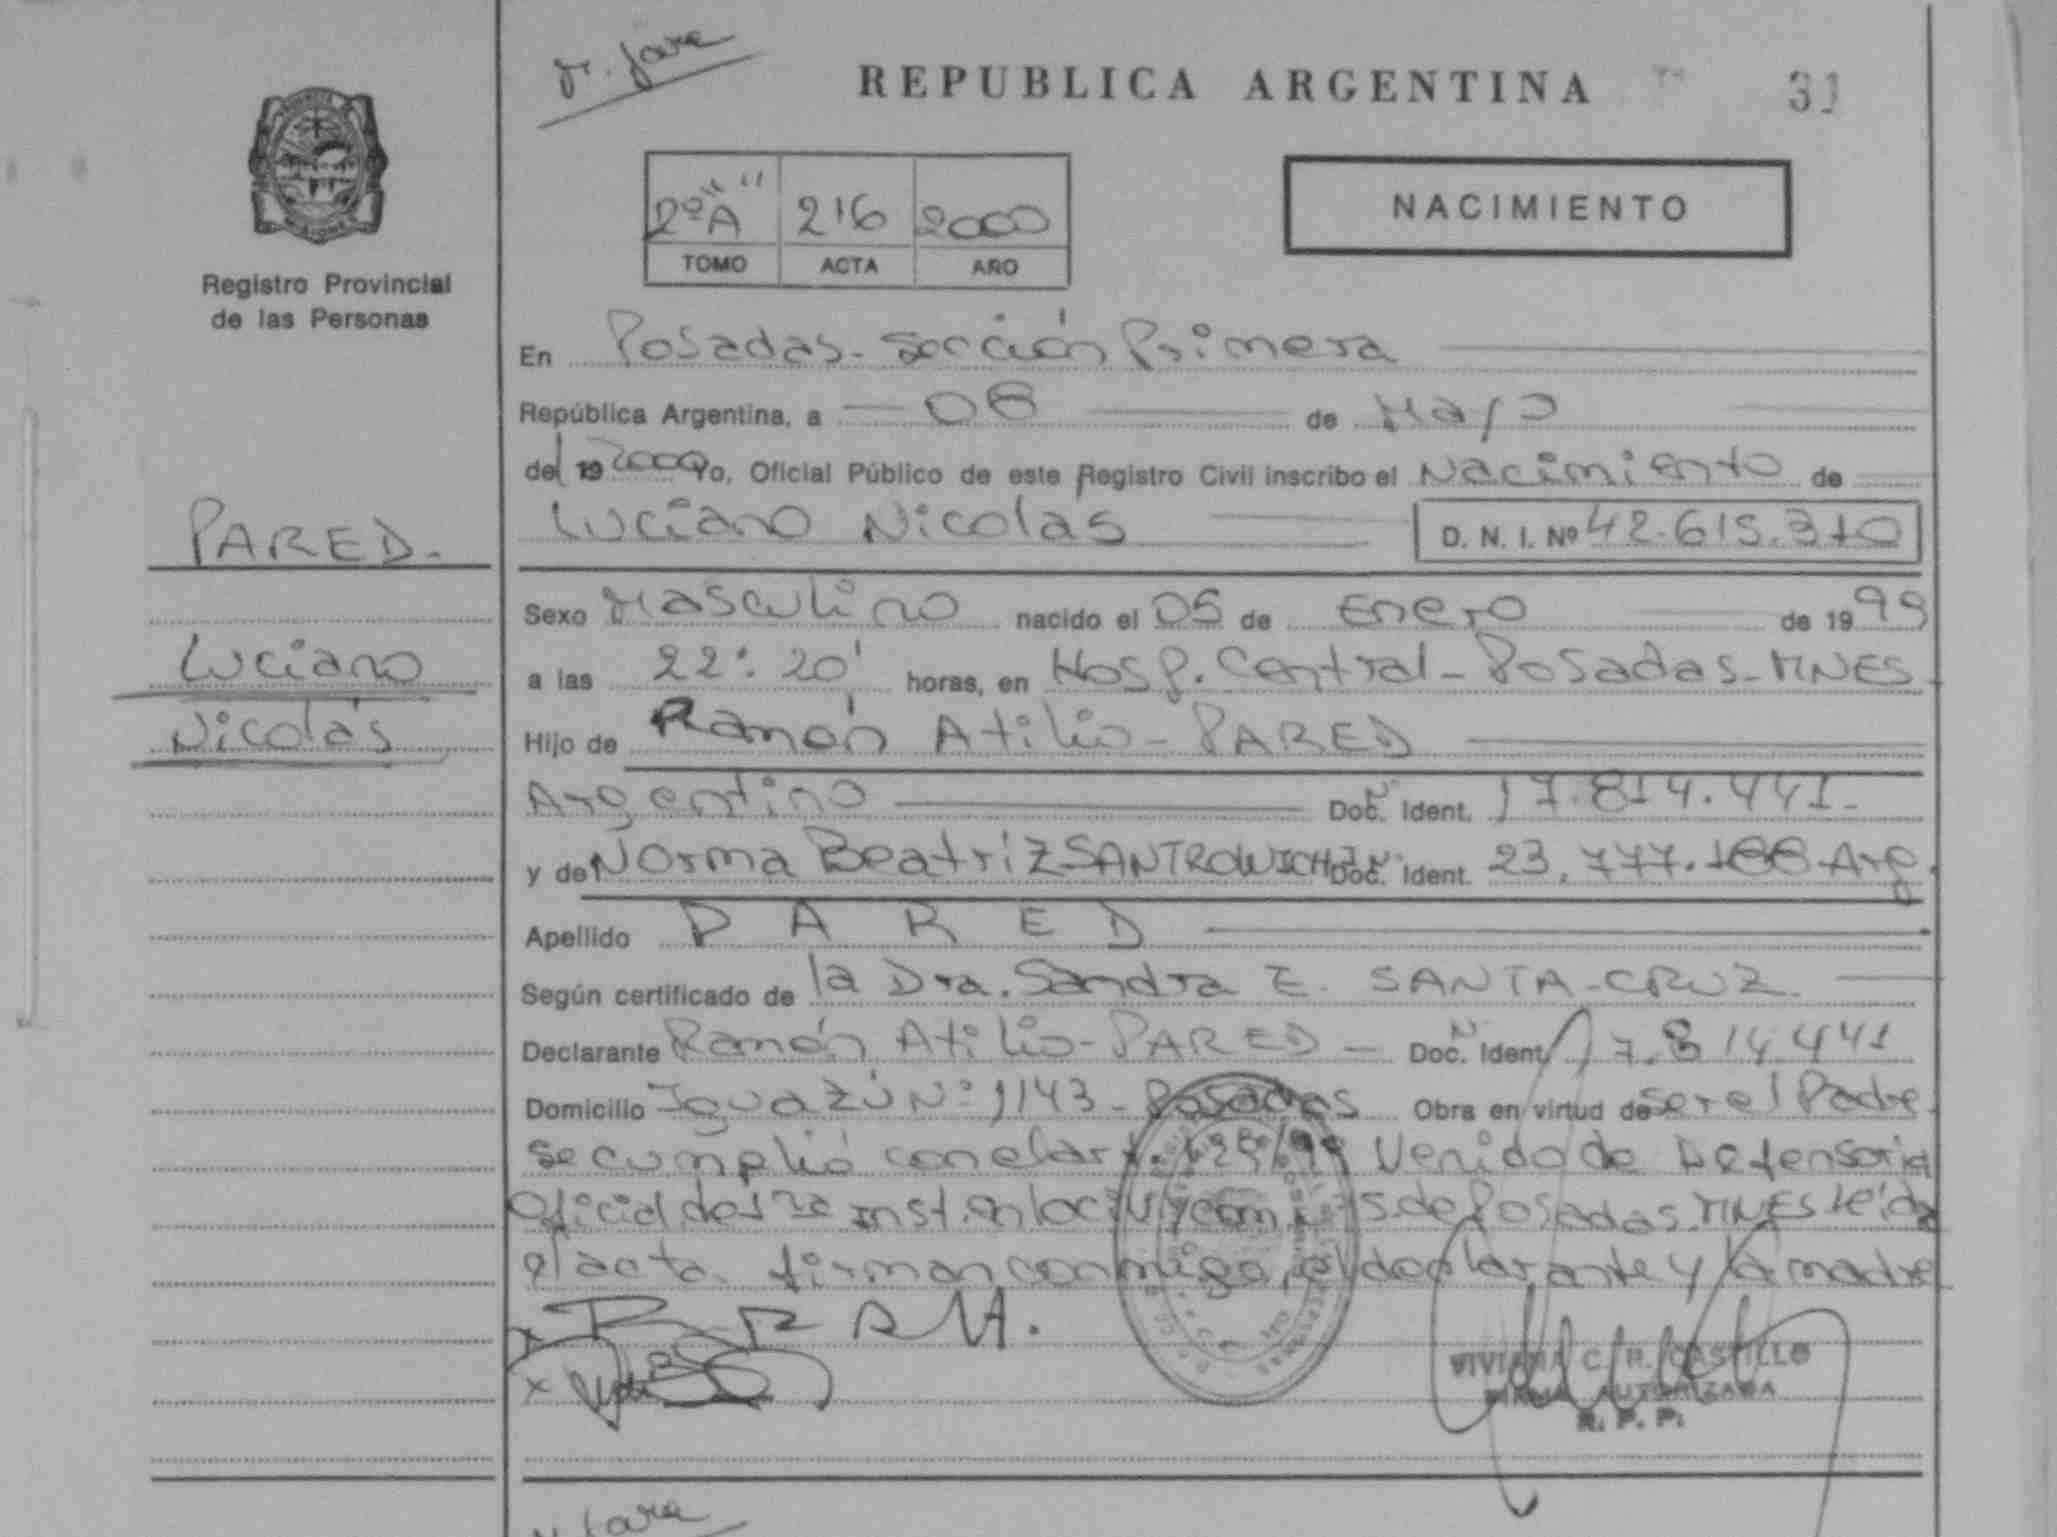 M. Jara
REPUBLICA ARGENTINA
31
2º "A" 216 2000
TOMO ACTA AÑO
NACIMIENTO
Registro Provincial
de las Personas
En Posadas - Sección Primera
República Argentina, a 08 de Mayo
del 19 2000 Yo, Oficial Público de este Registro Civil inscribo el Nacimiento de
Luciano Nicolas D. N. I. Nº 42.615.310
PARED.
Luciano
Nicolás
Sexo Masculino nacido el 05 de Enero de 1999
a las 22:20' horas, en Hosp. Central - Posadas - MNES.
Hijo de Ramón Atilio - PARED
Argentino Doc. Nº Ident. 17.814.441-
y de Norma Beatriz SANTROWICH Doc. Nº Ident. 23.777.188 Arg.
Apellido PARED
Según certificado de la Dra. Sandra E. SANTA-CRUZ.
Declarante Ramón Atilio - PARED - Doc. Nº Ident. 17.814.441
Domicilio Iguazú Nº 1143 - Posadas Obra en virtud de ser el Padre.
se cumplió con el art. Venido de Defensoria
Oficial de 1ra inst. en lo civ. y com. de Posadas. MNES Leída
el acta firman conmigo, el declarante y la madre
VIVIANA C. R. CASTILLO
FIRMA AUTORIZADA
R. P. P.
Jara